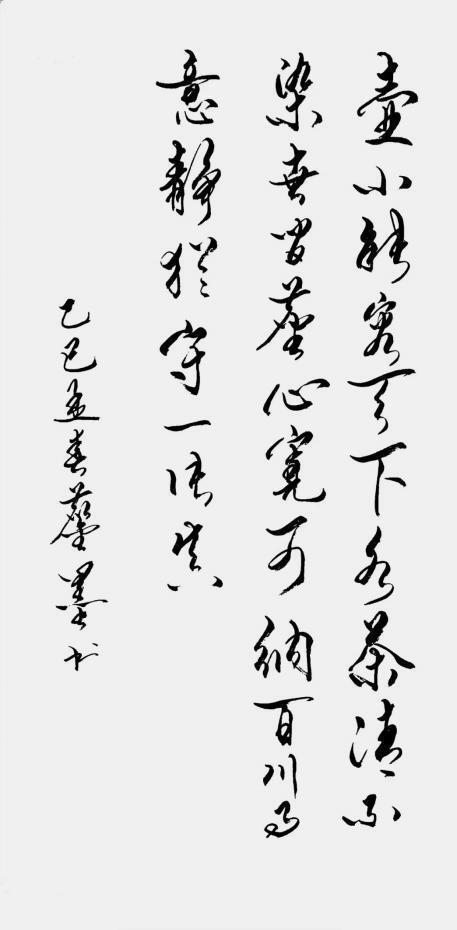 壶小能容天下水茶清不
染世间尘心宽可纳百川
意静犹守一真
乙巳孟春墨书